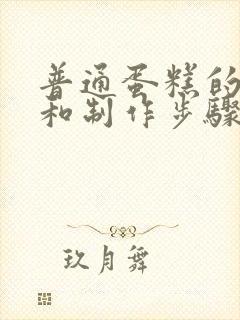 普通蛋糕的
和制作步骤
玖月舞